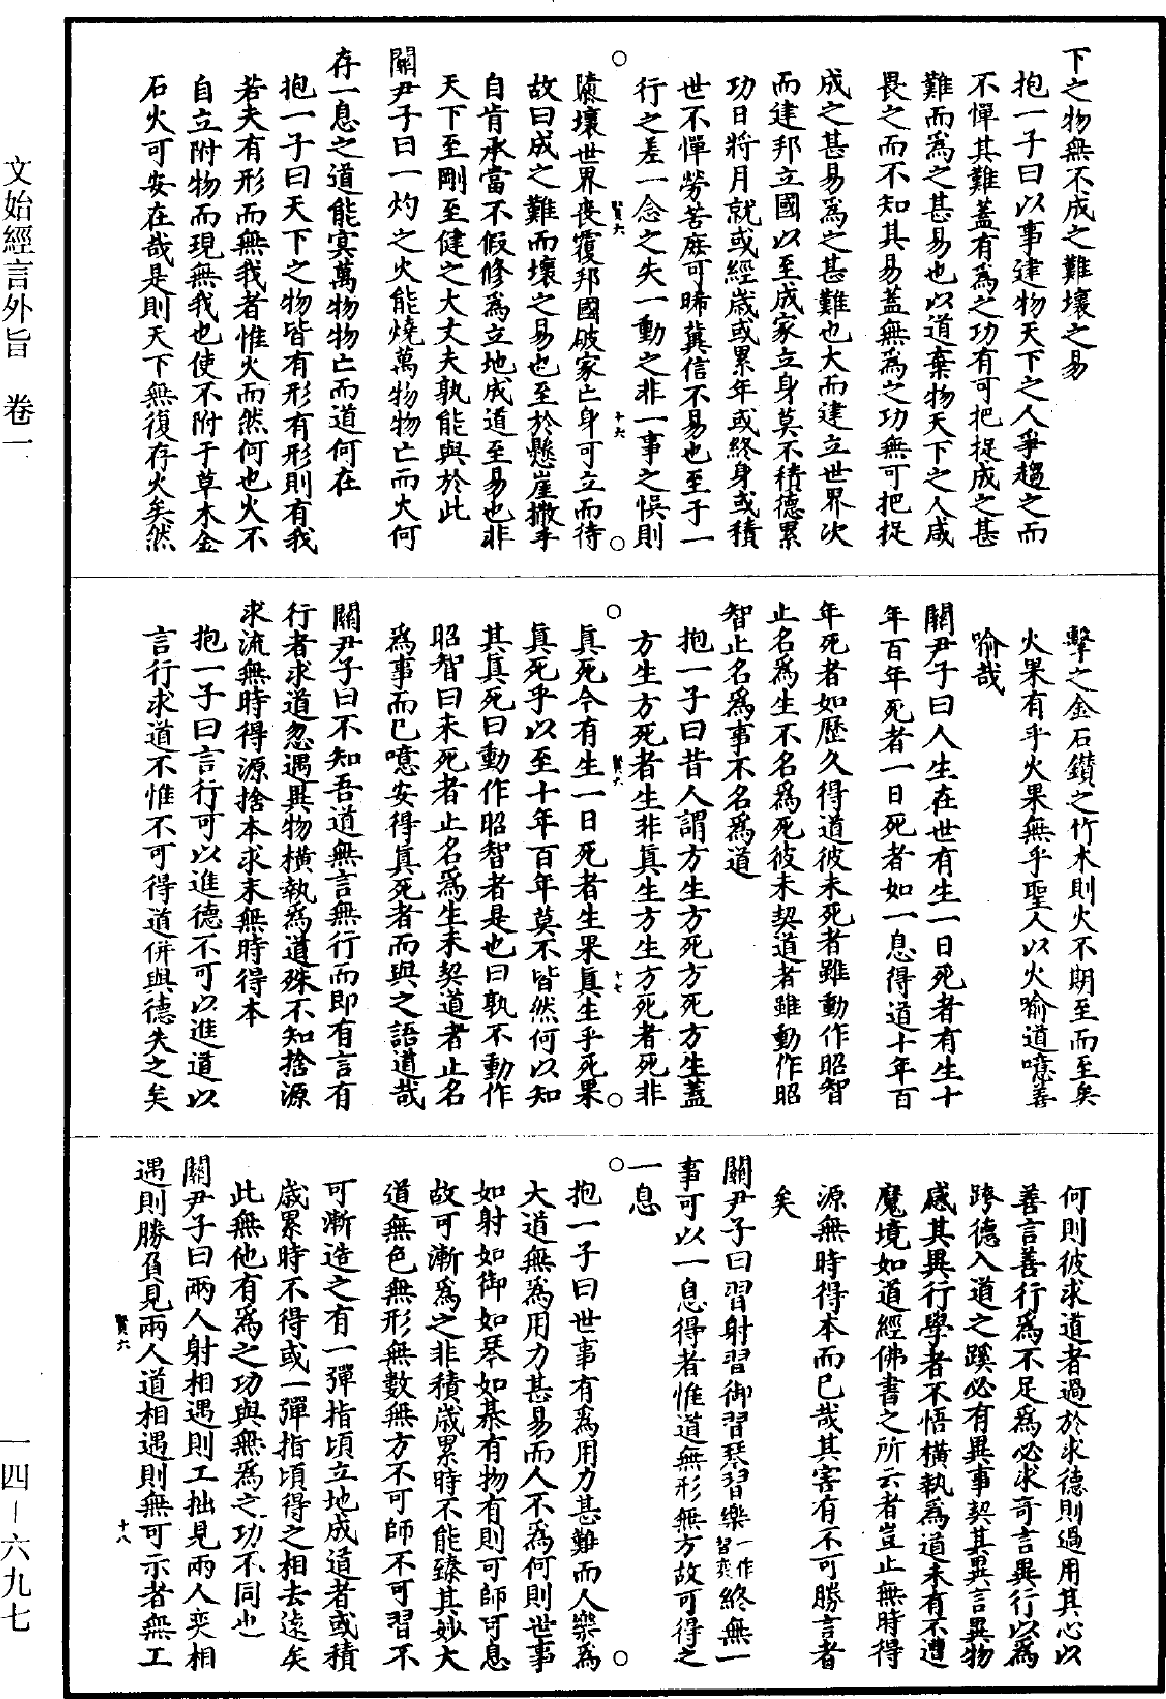 下之物無不成之難壞之易
抱一子曰以事建物天下之人爭趨之而
不憚其難蓋有爲之功有可把捉成之甚
難而爲之甚易也以道棄物天下之人咸
畏之而不知其易蓋無爲之功無可把捉
成之甚易爲之甚難也大而建立世界次
而建邦立國以至成家立身莫不積德累
功日將月就或經歲或累年或終身或積
世不憚勞苦庶可晞冀信不易也至于一
行之差一念之失一動之非一事之悞則
隳壞世界喪覆邦國破家亡身可立而待
故曰成之難而壞之易也至於懸崖撒手
自肯承當不假修爲立地成道至易也非
天下至剛至健之大丈夫孰能與於此
關尹子曰一灼之火能燒萬物物亡而火何
存一息之道能冥萬物物亡而道何在
抱一子曰天下之物皆有形有形則有我
若夫有形而無我者惟火而然何也火不
自立附物而現無我也使不附于草木金
石火可安在哉是則天下無復存火矣然
擊之金石鑽之竹木則火不期至而至矣
火果有乎火果無乎聖人以火喻道噫善
喻哉
關尹子曰人生在世有生一日死者有生十
年百年死者一日死者如一息得道十年百
年死者如歷久得道彼未死者雖動作昭智
止名爲生不名爲死彼未契道者雖動作昭
智止名爲事不名爲道
抱一子曰昔人謂方生方死方死方生蓋
方生方死者生非真生方生方死者死非
真死今有生一日死者生果真生乎死果
真死乎以至十年百年莫不皆然何以知
其真死曰動作昭智者是也曰孰不動作
昭智曰未死者止名爲生未契道者止名
爲事而已噫安得真死者而與之語道哉
關尹子曰不知吾道無言無行而即有言有
行者求道忽遇異物橫執爲道殊不知捨源
求流無時得源捨本求末無時得本
抱一子曰言行可以進德不可以進道以
言行求道不惟不可得道併與德失之矣
何則彼求道者過於求德則過用其心以
善言善行爲不足爲必求奇言異行以爲
跨德入道之蹊必有異事契其異言異物
感其異行學者不悟橫執爲道未有不遭
魔境如道經佛書之所云者豈止無時得
源無時得本而已哉其害有不可勝言者
矣
關尹子曰習射習御習琴習樂一作習奕終無一
事可以一息得者惟道無形無方故可得之
一息
抱一子曰世事有爲用力甚難而人樂爲
大道無爲用力甚易而人不爲何則世事
如射如御如琴如棊有物有則可師可息
故可漸爲之非積歲累時不能臻其妙大
道無色無形無數無方不可師不可習不
可漸造之有一彈指頃立地成道者或積
歲累時不得或一彈指頃得之相去遠矣
此無他有爲之功與無爲之功不同也
關尹子曰兩人射相遇則工拙見兩人奕相
遇則勝負見兩人道相遇則無可示者無工
賢六
十六
賢六
十七
賢六
十八
文始經言外旨 卷一
一四－六九七